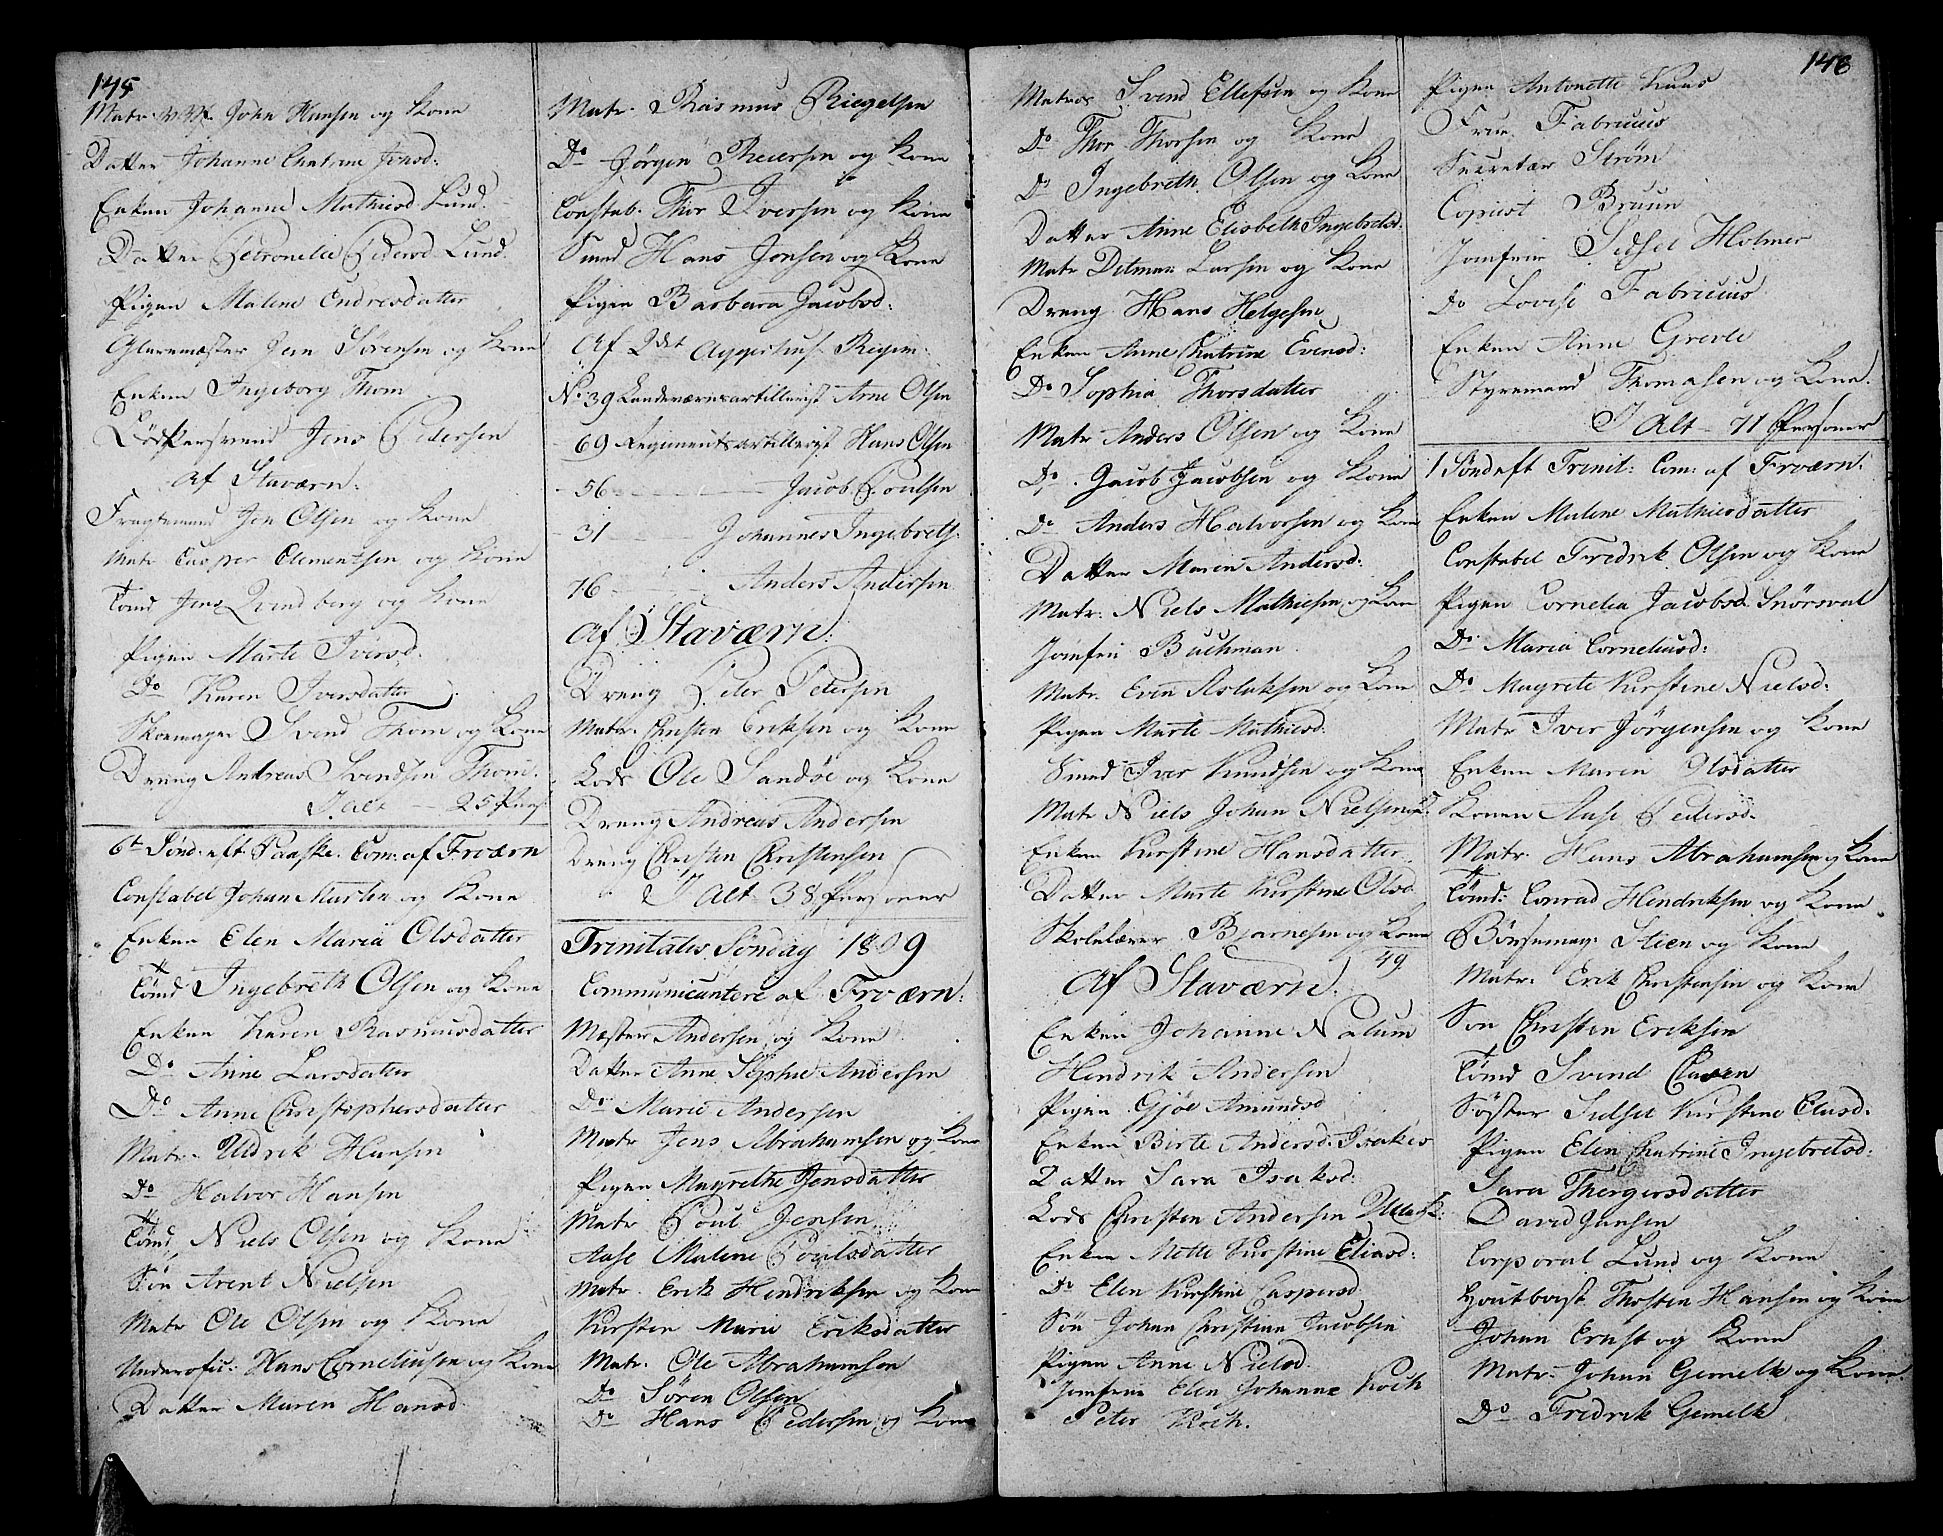 145
Matr. John Hansen og Kone
Datter Johanne Chatrine Jonsd:
Enken Johanne Mathiesd. Lund.
Datter Petronelle Pedersd Lund.
Pigen Malene Endresdatter
Glaremæster Jern Sørensen og Kone
Enken Ingeborg Thom
Jens Pedersen
af Staværn.
Fragtemand Jon Olsen og Kone
Matr Casper Clementsen og Kone
Tømd Jens Qvindberg og Kone
Pigen Marte Iversd.
Do Karen Iversdatter
Skoemager Svend Thom og Kone
Dreng Andreas Svendsen Thom.
I alt — 25 Pers:
6te Sønd. eft. Paaske. Com: af Frværn
Constabel Johan Martin og Kone
Enken Elen Maria Olsdatter
Tømd Ingebreth Olsen og Kone
Enken Karen Rasmusdatter
Do Anne Larsdatter
Do Anne Christophersdatter
Matr. Uldrik Hansen
Do Halvor Hansen
Tømd Niels Olsen og Kone
Søn Arent Nielsen
Matr Ole Olsen og Kone
Underofic: Hans Corneliusen og Kone
Datter Maren Hansd.
Matr. Rasmus Riegelsen
Do Jørgen Reiersen og Kone
Constab. Thor Iversen og Kone
Smed Hans Jonsen og Kone
Pigen Barbara Jacobsd:
Af 2det Aggershus. Regim:
No 39 Landeværnsartillerist Arne Olsen
69 Regimentsartillerist Hans Olsen
56 — Jacob Poulsen
31 — Johannes Ingebrets.
76 — Anders Andersen
Af Staværn:
Dreng Peter Petersen
Matr. Christen Eriksen og Kone
Lods Ole Sandøe og Kone
Dreng Andreas Andersen
Dreng Christen Christensen
I Alt 38 Personer
Trinitatis Søndag 1809
Communicantere af Frværn:
Mæster Andersen og Kone
Datter Anne Sophie Andersen
Do Marie Andersen
Matr Jens Abrahamsen og Kone
Pigen Magrethe Jensdatter
Matr Poul Jensen
Aase Malene Poulsdatter
Matr. Erik Hendriksen og Kone
Kirsten Marie Eriksdatter
Matr. Ole Abrahamsen
Do Søren Olsen
Do Hans Pedersen og Kone
Matros Svend Ellefsen og Kone
Do Thor Thorsen og Kone
Do Ingebreth Olsen og Kone
Datter Anne Elisbeth Ingebretsd.
Matr Ditman Larsen og Kone
Dreng Hans Helgesen
Enken Anne Chatrine Evensd:
Do Sophia Thorsdatter
Matr Anders Olsen og Kone
Do Jacob Jacobsen og Kone
Do Anders Halvorsen og Kone
Datter Maren Andersd:
Matr: Niels Mathiesen og Kone
Jomfru Buchman
Matr. Even Aslaksen og Kone
Pigen Marte Mathiesd.
Smed Iver Knudsen og Kone
Matr Niels Johan Nielsen
Enken Kirstine Hansdatter
Datter Marte Kirstine Olsd.
Skolelærer Biarnesen og Kone
49
Af Staværn.
Enken Johanne Nalum
Hendrik Andersen
Pigen Gjøe Amundsd
Enken Birte Andersd. Isakes
Datter Sara Isaksd.
Lods Christen Andersen
Enken Mette Kirstine Eliasd:
Do Elen Kirstine Caspersd.
Søn Johan Christian Jacobsen
Pigen Anne Nielsd.
Jomfrue Elen Johanne Koch
Peter Koch.
146
Pigen Antonette Kaas
Frue Fabricius
Secretær Strøm
Copiist Bruun
Jomfrue Sidsel Holmer
do Lovise Fabricius
Enken Anne Greve
Styremand Thomasen og Kone.
I Alt — 71 Personer
1 Sønd eft Trinit: Com: af Frværn.
Enken Malene Mathiesdatter
Constabel Fredrik Olsen og Kone
Pigen Cornelia Jacobsd. Snørsval
Do Maria Corneliusd:
Do Magrete Kirstine Nielsd:
Matr Iver Jørgensen og Kone
Enken Maren Olsdatter
Konen Aase Pedersd.
Matr. Hans Abrahamsen og Kone
Tømd: Conrad Hendriksen og Kone
Børsemag: Stien og Kone
Matr: Erik Christensen og Kone
Søn Christen Eriksen
Tømd Svend Clasen
Søster Sidsel Kirstine Clasd.
Pigen Elen Chatrine Ingebretsd:
Sara Thorgersdatter
David Jansen
Corporal Lund og Kone
Houtboist Thosten Hansen og Kone
Johan Ernst og Kone
Matr. Johan Gemelk og Kone.
Do Fredrik Gemelk